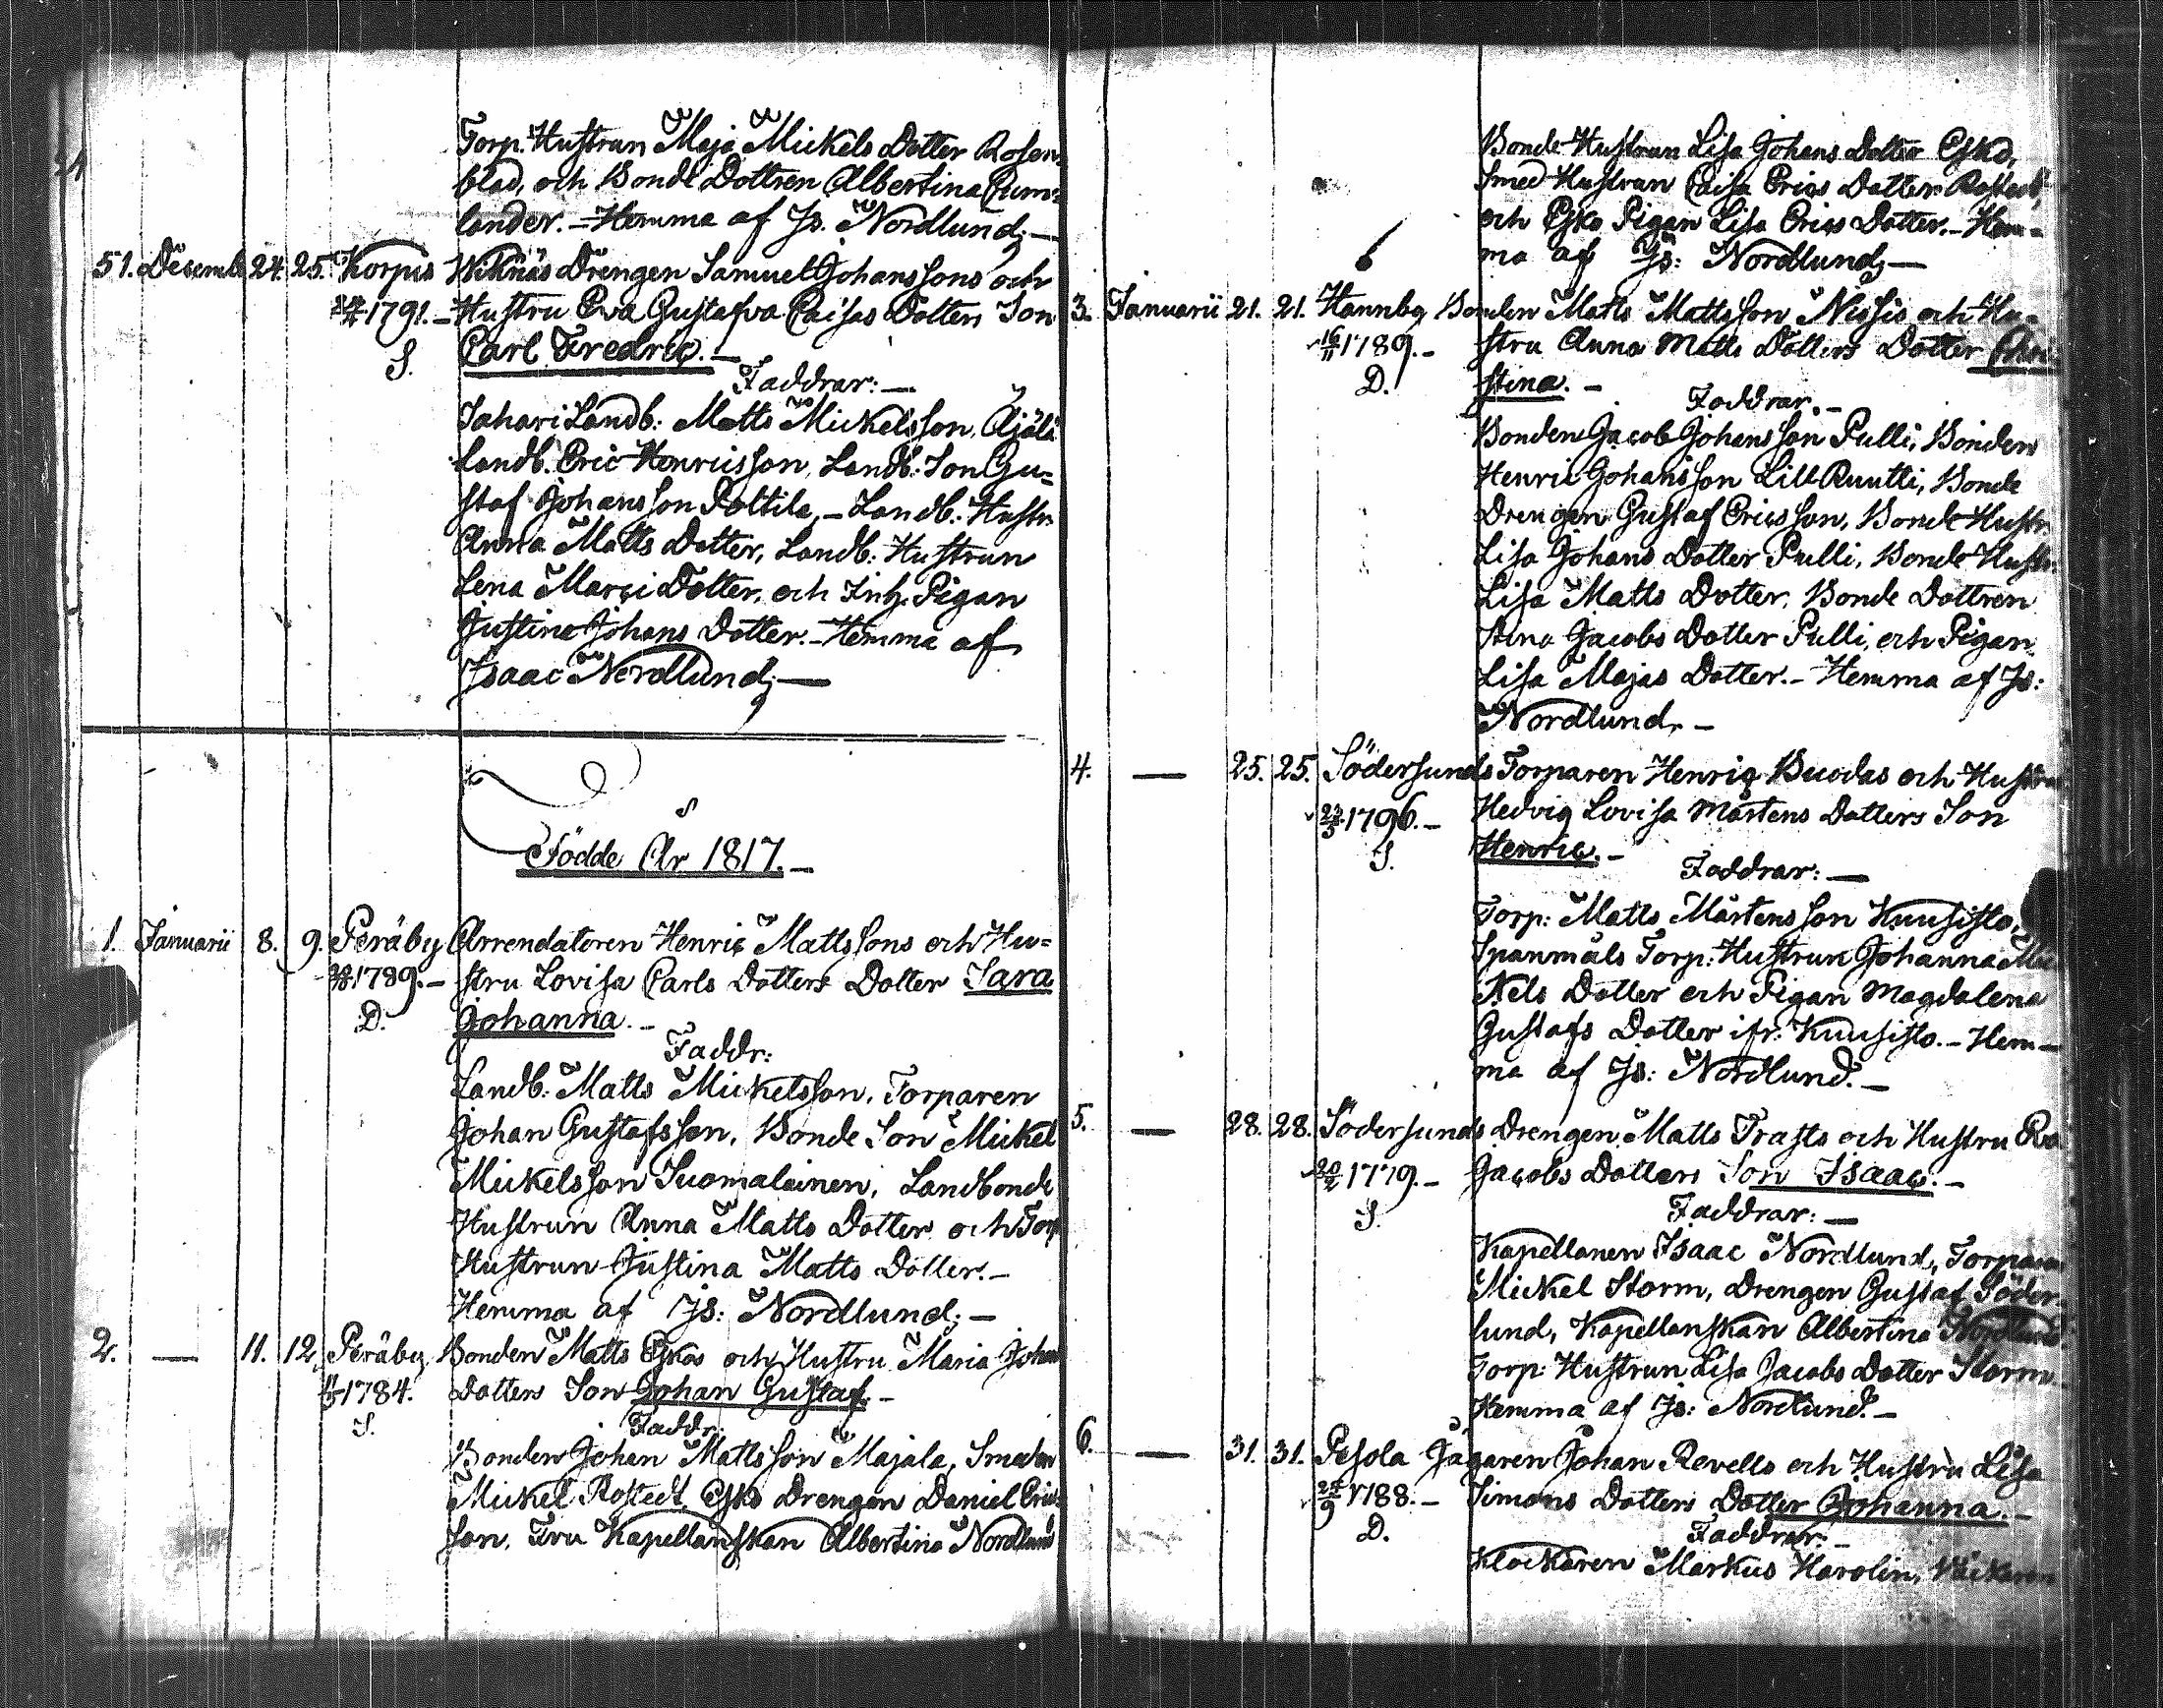 Torp. Hustrun Maja Mickels Dotter Rosen-
blad, och Bonde Dottren Albertina
lander. - Hemma af Js. Nordlund; —
51. Decemb. 24. 25. Korpis Wiknäs Drengen Samuel Johanssons och
1791. - Hustru Eva Gustafva Caisas Dotters Son
S. Carl Fredric. —
Faddrar: —
Sahari Landb: Matts Mickelsson, Äjälä
Landb. Eric Henricsson, Landb: Son Gu-
staf Johansson Pottila, - Landb: Hustr.
Anna Matts Dotter, Landb: Hustrun
Lena Marci Dotter, och Inh. Pigan
Justina Johans Dotter. - Hemma af
Isaac Nordlund; —
Födde År 1817. —
1. Januarii 8. 9. Peräby Arrendatoren Henric Mattssons och Hu-
1789. - stru Lovisa Carls Dotters Dotter Sara
D. Johanna. -
Faddr:
Landb: Matts Mickelsson, Torparen
Johan Gustafsson, Bonde Son Mickel
Mickelsson Suomalainen, Landbonde
Hustrun Anna Matts Dotter och Torp
Hustrun Justina Matts Dotter. -
Hemma af Js: Nordlund; —
2. — 11. 12. Peräby Bonden Matts Eskos och Hustru Maria Johans
1784. Dotters Son Johan Gustaf. -
S. Faddr:
Bonden Johan Mattsson Majala, Smeden
Mickel Rostedt, Esko Drengen Daniel Erics
son, Fru Kapellanskan Albertina Nordlund
Bonde Hustrun Lisa Johans Dotter Esko,
Smed Hustrun Caisa Erics Dotter Rostedt,
och Esko Pigan Lisa Erics Dotter. - Hem-
ma af Js: Nordlund; —
3. Januarii 21. 21. Hannby Bonden Matts Mattsson Nissis och Hu-
16/11 1789. - stru Anna Matts Dotters Dotter Chri-
D. stina. -
Faddrar. -
Bonden Jacob Johansson Pulli, Bonden
Henric Johansson Lill Ruutti, Bonde
Drengen Gustaf Ericsson, Bonde Hustr.
Lisa Johans Dotter Pulli, Bonde Hustr.
Lisa Matts Dotter, Bonde Dottren
Stina Jacobs Dotter Pulli, och Pigan
Lisa Majas Dotter. - Hemma af Js:
Nordlund. -
4. — 25. 25. Södersunds Torparen Henric Buodas och Hustru
1796. - Hedvig Lovisa Mårtens Dotters Son
S. Henric. -
Faddrar: —
Torp: Matts Mårtensson Kuusisto,
Spanmåls Torp: Hustrun Johanna Mic
kels Dotter och Pigan Magdalena
Gustafs Dotter ifr: Kuusisto. - Hem-
ma af Js: Nordlund. -
5. — 28. 28. Södersunds Drengen Matts Trasts och Hustru Eva
20/2 1779. - Jacobs Dotters Son Isaac. -
S. Faddrar: —
Kapellanen Isaac Nordlund, Torparen
Mickel Storm, Drengen Gustaf Söder-
lund, Kapellanskan Albertina Nordlund
Torp: Hustrun Lisa Jacobs Dotter Storm.
Hemma af Js: Nordlund. -
6. — 31. 31. Pesola Jägaren Johan Revells och Hustru Lisa
1788. - Simons Dotters Dotter Johanna. -
D. Faddrar: -
Klockaren Markus Harolin,